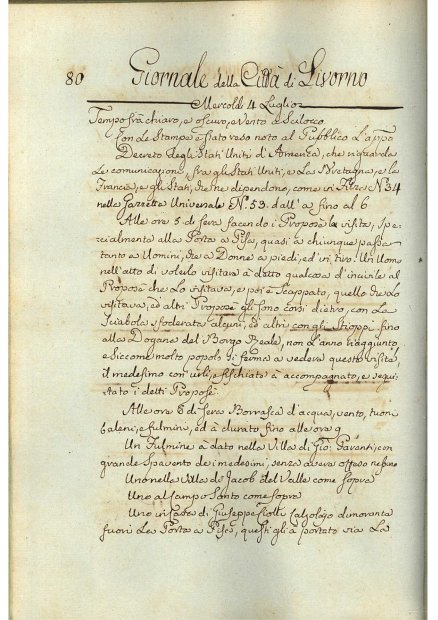 80 Giornale della Città di Livorno
Mercoldì 4 Luglio
Tempo frà chiaro, e oscuro, e vento a Scilocco
Con Le Stampe è stato reso noto al Pubblico L'
Decreto degli Stati Uniti d'America, che riguarda
Le comunicazioni frà gli Stati Uniti, e La Bretagna, e la
Francia, e gli Stati, che ne dipendono, come vi N.º 34
nella Gazzetta Universale N.º 53. dall' a fino al 6
Alle ore 5 di sera facendo i Proposè la visita, spe-
cialmente alla Porta a Pisa, quasi a chiunque passa
tanto a Uomini, che a Donne a piedi, ed in Un Uomo
nell'atto di volerlo visitare à detto qualcosa d'incivile al
Proposè che Lo visitava, e poi è Scappato, quello che Lo
visitava, ed altri Proposè gli sono corsi dietro, con La
Sciabola sfoderata alcuni, ed altri con gli Stioppi fino
alla Dogana del Borgo Reale, non L'anno raggiunto,
e siccome molto popolo si fermò a vedere questa visita,
il medesimo con urli, e fischiate à accompagnato, e segui-
tato i detti Proposè.
Alle ore 6 di sera Borrasca d'acqua, vento, tuoni
baleni, e fulmini, ed à durato fino alle ore 9
Un Fulmine à dato nella Villa di Gio: Gavanti, con
grande spavento dei medesimi, senza avere offeso nessuno
Uno nella Villa di Jacob del Valle come sopra
Uno al Campo Santo come sopra
Uno in Casa di Giuseppe dimorante
fuori La Porta a Pisa, questi gli à portato via La